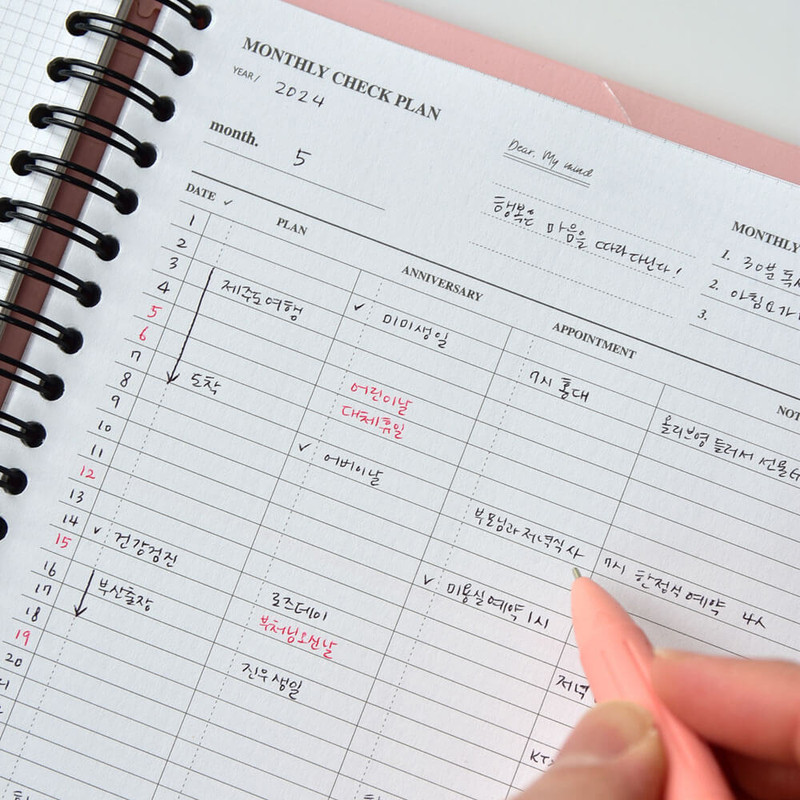 MONTHLY CHECK PLAN
YEAR/ 2024
month. 5
Dear. My mind
행복은 마음을 따라다닌다!
MONTHLY
1. 30분
2. 아침요가
3.
DATE ✓ PLAN ANNIVERSARY APPOINTMENT
1
2
3 제주도여행 ✓ 미미생일
4 7시 홍대 올리브영 들러서 선물
5 어린이날
6 대체휴일
7 도착
8 ✓ 어버이날 부모님과 저녁식사 7시 한정식 예약 4人
9
10
11 ✓ 미용실예약 1시
12
13
14 ✓ 건강검진 로즈데이
15 부처님오신날
16 부산출장
17 진우생일
18
19
20